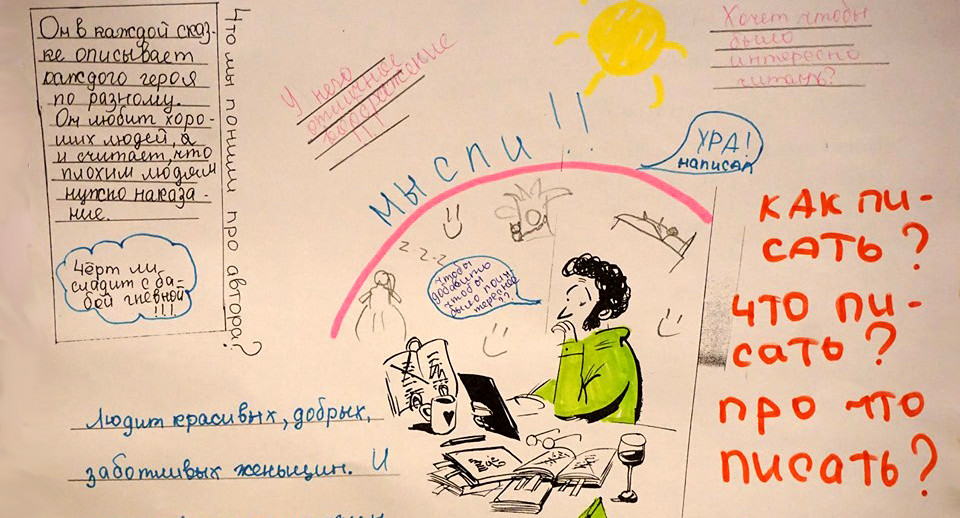 Он в каждой сказ-
ке описывает
каждого героя
по разному.
Он любит хоро-
ших людей, а
и считает, что
плохим людям
нужно наказа-
ние.
Что мы поняли про автора?
Чёрт ли
сладит с ба-
бой гневной
!!!
У него
отличное
воображение
!!!
Хочет чтобы
было
интересно
читать?
МЫСЛИ!!
УРА!
написал
z z z
чтобы
добавить
чтобы
было поин
тереснее
??
КАК ПИ-
САТЬ?
ЧТО ПИ-
САТЬ?
ПРО ЧТО
ПИСАТЬ?
Людит красивых, добрых,
заботливых женьщин. И